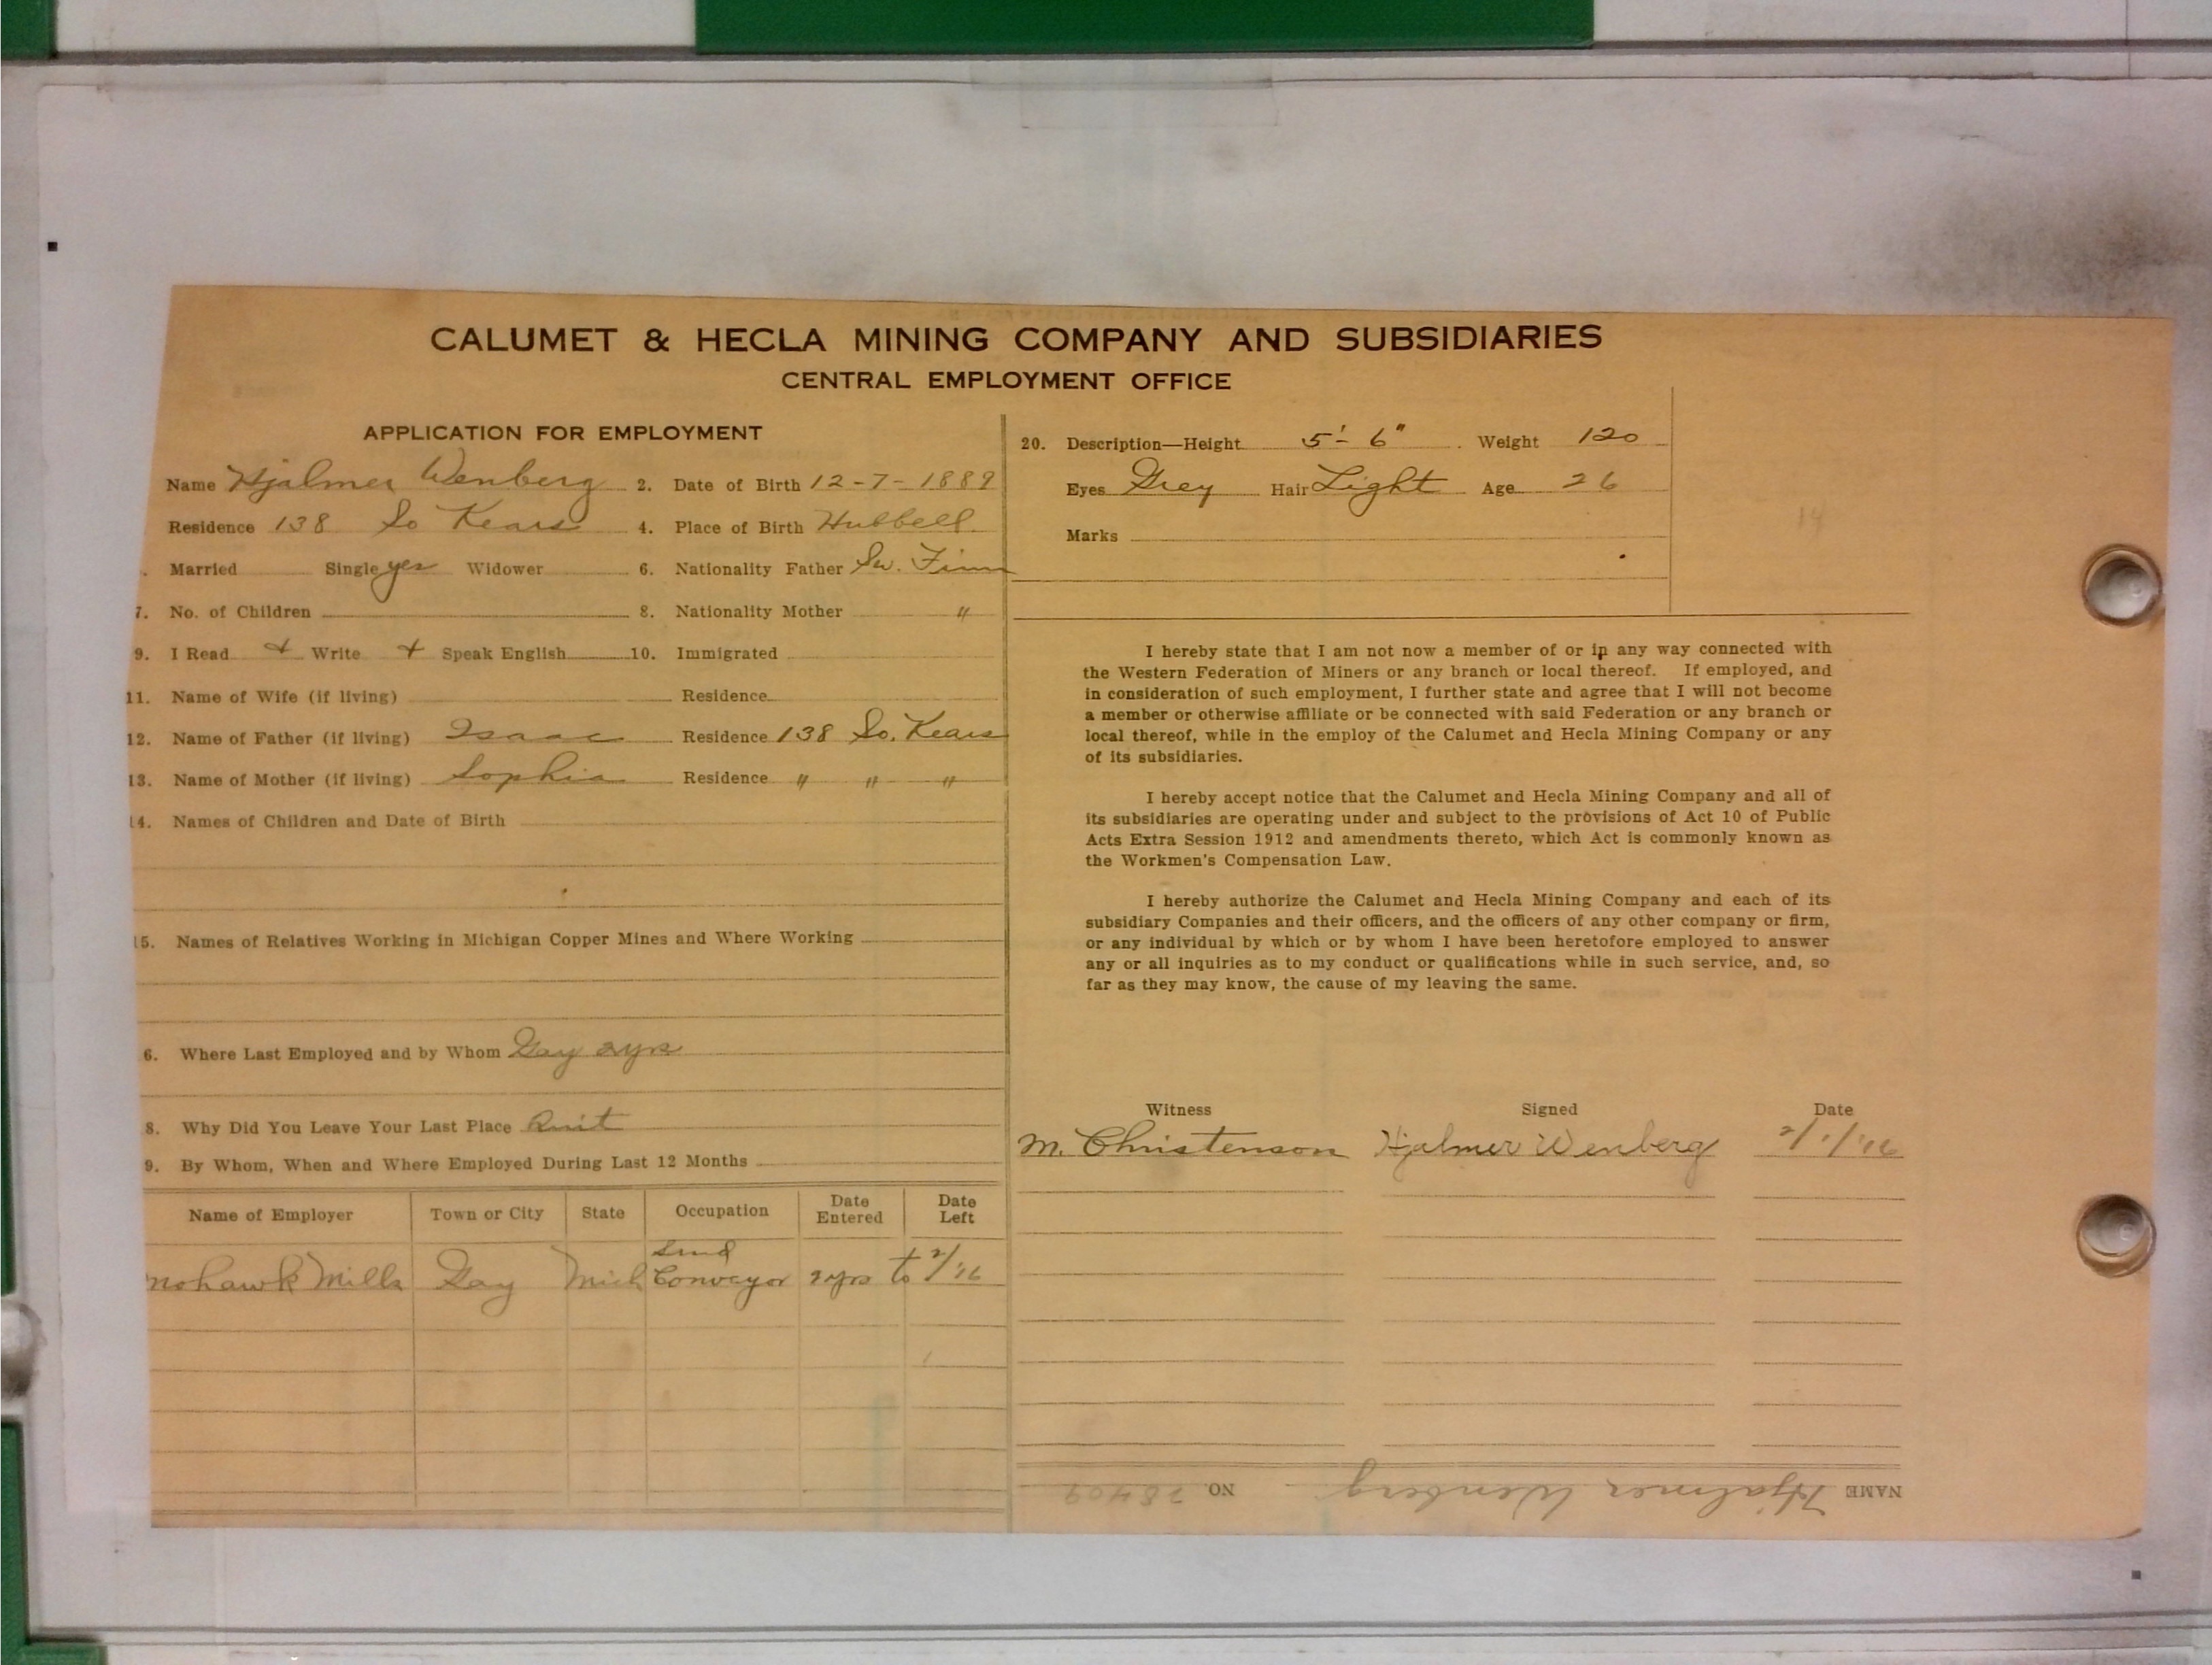 CALUMET & HECLA MINING COMPANY AND SUBSIDIARIES
CENTRAL EMPLOYMENT OFFICE
APPLICATION FOR EMPLOYMENT
Name Hjalmer Wenberg 2. Date of Birth 12-7-1889
Residence 138 So Kears 4. Place of Birth Hubbell
Married Single yes Widower 6. Nationality Father Sw. Finn
7. No. of Children 8. Nationality Mother "
9. I Read + Write + Speak English 10. Immigrated
11. Name of Wife (if living) Residence
12. Name of Father (if living) Isaac Residence 138 So. Kears
13. Name of Mother (if living) Sophia Residence " " "
14. Names of Children and Date of Birth
15. Names of Relatives Working in Michigan Copper Mines and Where Working
6. Where Last Employed and by Whom Gay 2yrs
8. Why Did You Leave Your Last Place Quit
9. By Whom, When and Where Employed During Last 12 Months
Name of Employer Town or City State Occupation Date Entered Date Left
Mohawk Mills Gay Mich Conveyor 2yrs to 2/'16
20. Description—Height 5'-6" Weight 120
Eyes Grey Hair Light Age 26
14
Marks
I hereby state that I am not now a member of or in any way connected with
the Western Federation of Miners or any branch or local thereof. If employed, and
in consideration of such employment, I further state and agree that I will not become
a member or otherwise affiliate or be connected with said Federation or any branch or
local thereof, while in the employ of the Calumet and Hecla Mining Company or any
of its subsidiaries.
I hereby accept notice that the Calumet and Hecla Mining Company and all of
its subsidiaries are operating under and subject to the provisions of Act 10 of Public
Acts Extra Session 1912 and amendments thereto, which Act is commonly known as
the Workmen's Compensation Law.
I hereby authorize the Calumet and Hecla Mining Company and each of its
subsidiary Companies and their officers, and the officers of any other company or firm,
or any individual by which or by whom I have been heretofore employed to answer
any or all inquiries as to my conduct or qualifications while in such service, and, so
far as they may know, the cause of my leaving the same.
Witness Signed Date
M. Christenson Hjalmer Wenberg 2/1/'16
NAME Hjalmer Wenberg NO. 28409